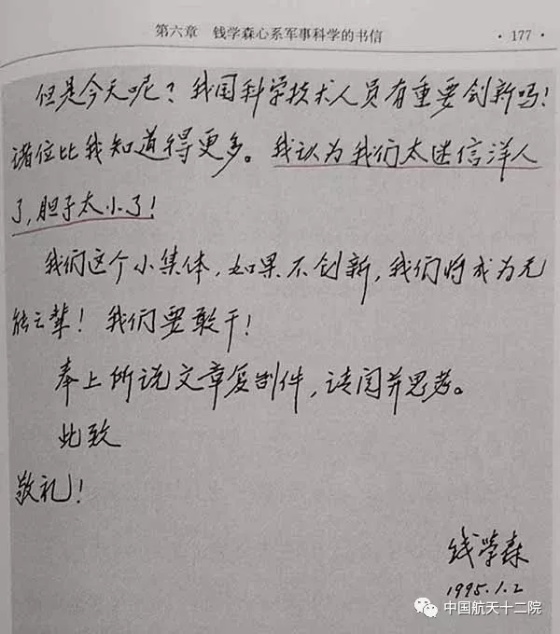 第六章 钱学森心系军事科学的书信 · 177 ·
但是今天呢？我国科学技术人员有重要创新吗！
诸位比我知道得更多。我认为我们太迷信洋人
了，胆子太小了！
我们这个小集体，如果不创新，我们将成为无
能之辈！我们要敢干！
奉上所说文章复制件，请阅并思考。
此致
敬礼！
钱学森
1995.1.2
中国航天十二院